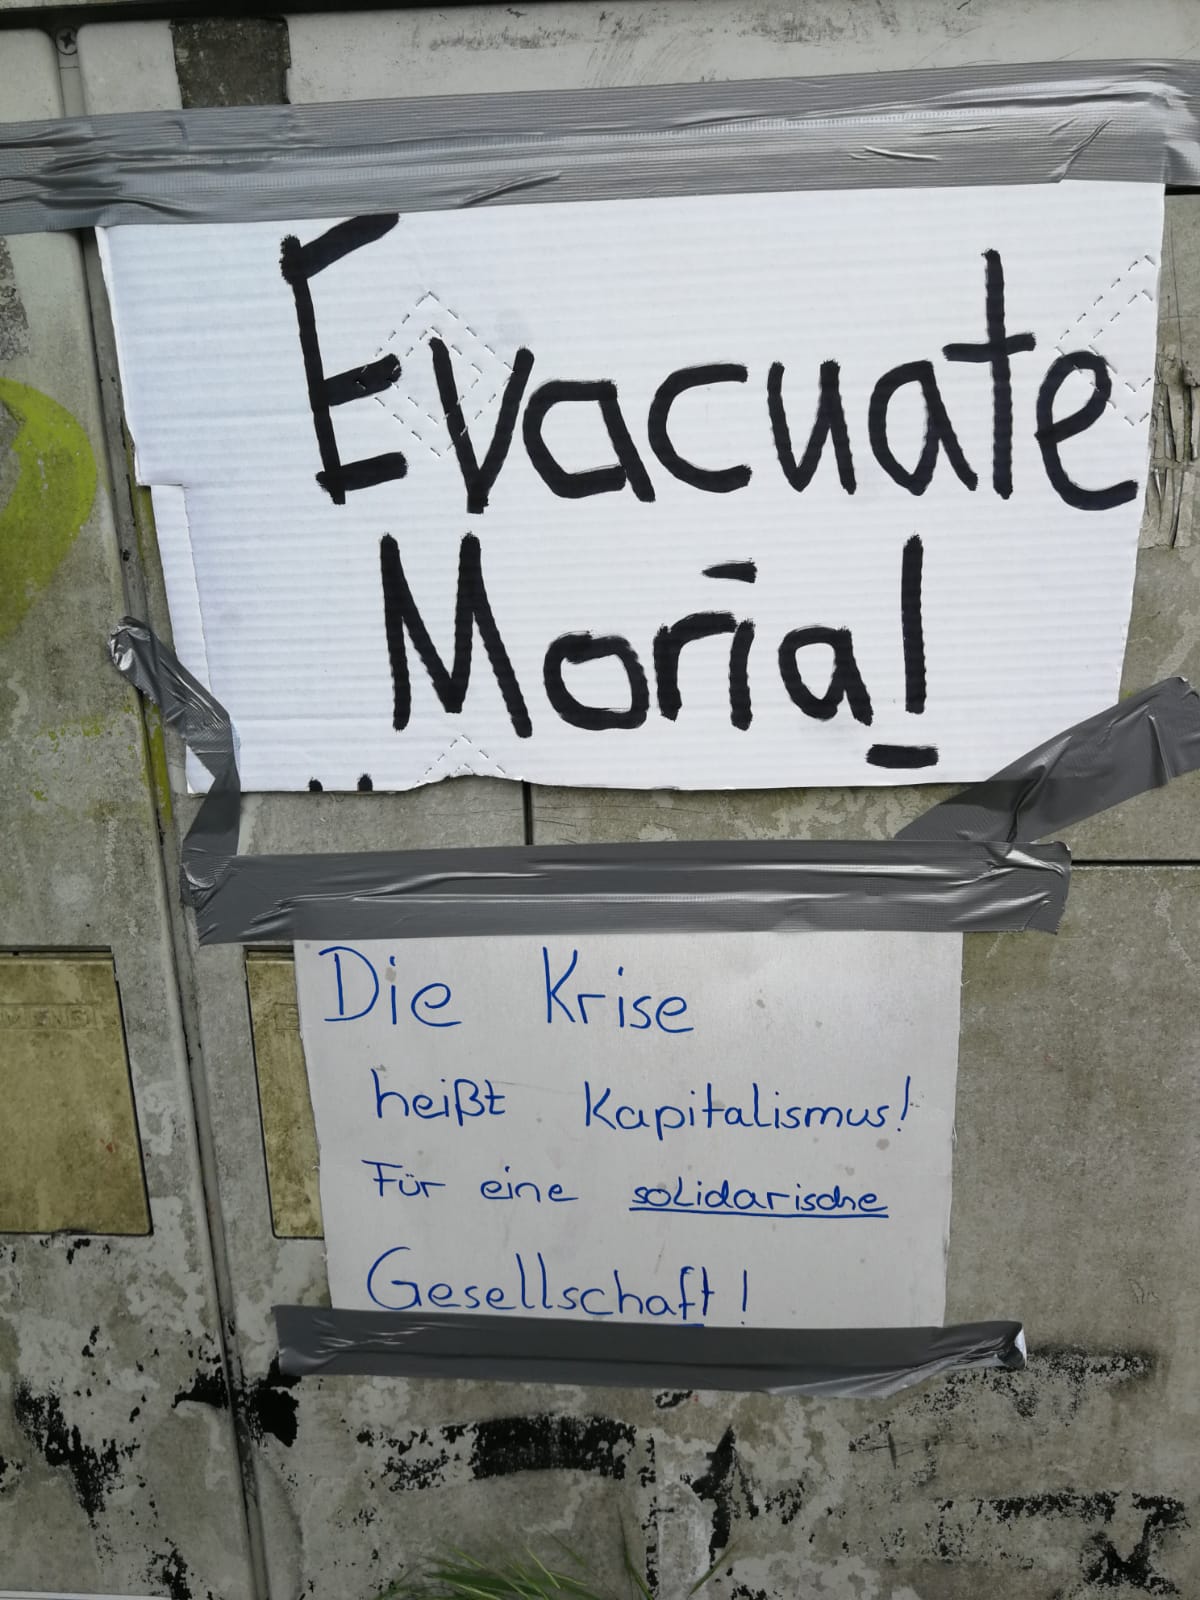 Evacuate
Moria!
Die Krise
heißt Kapitalismus!
Für eine solidarische
Gesellschaft!